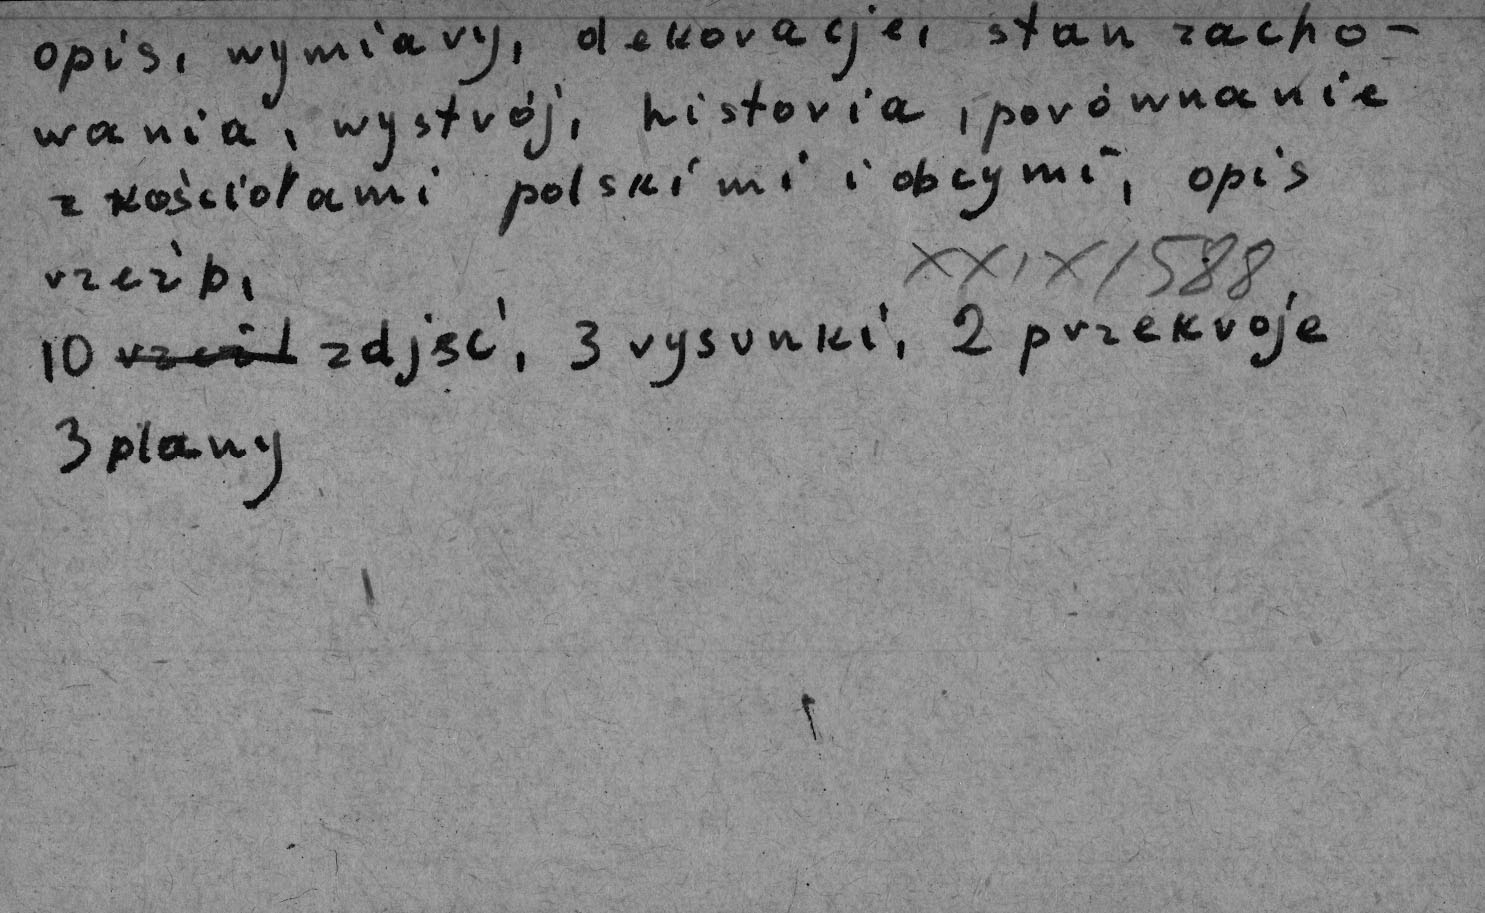 opis, wymiary, dekoracje, stan zacho-
wania, wystrój, historia, porównanie
z kościołami polskimi i obcymi, opis
rzeźb,
XXIX/588
10 rzeźb zdjęć, 3 rysunki, 2 przekroje
3 plany